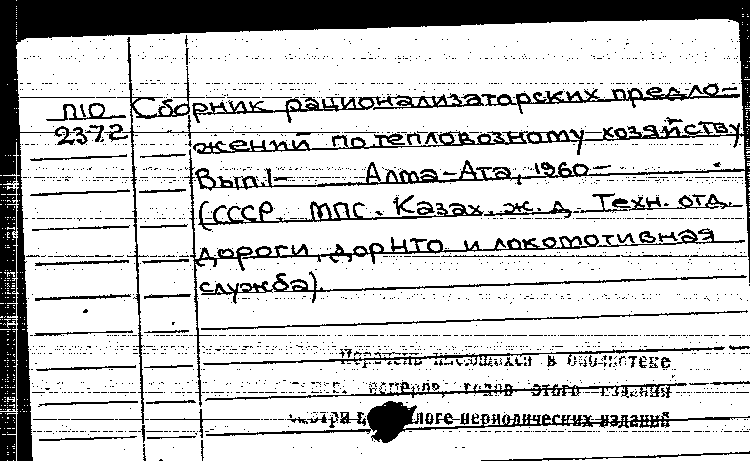 П10 Сборник рационализаторских предло-
2372 жений по тепловозному хозяйству
Вып.1- Алма-Ата, 1960-
(СССР. МПС. Казах. ж. д. Техн. отд.
дороги, дорНТО и локомотивная
служба).
Перечень имеющихся в библиотеке
номеров, годов этого издания
смотри в логе периодических изданий